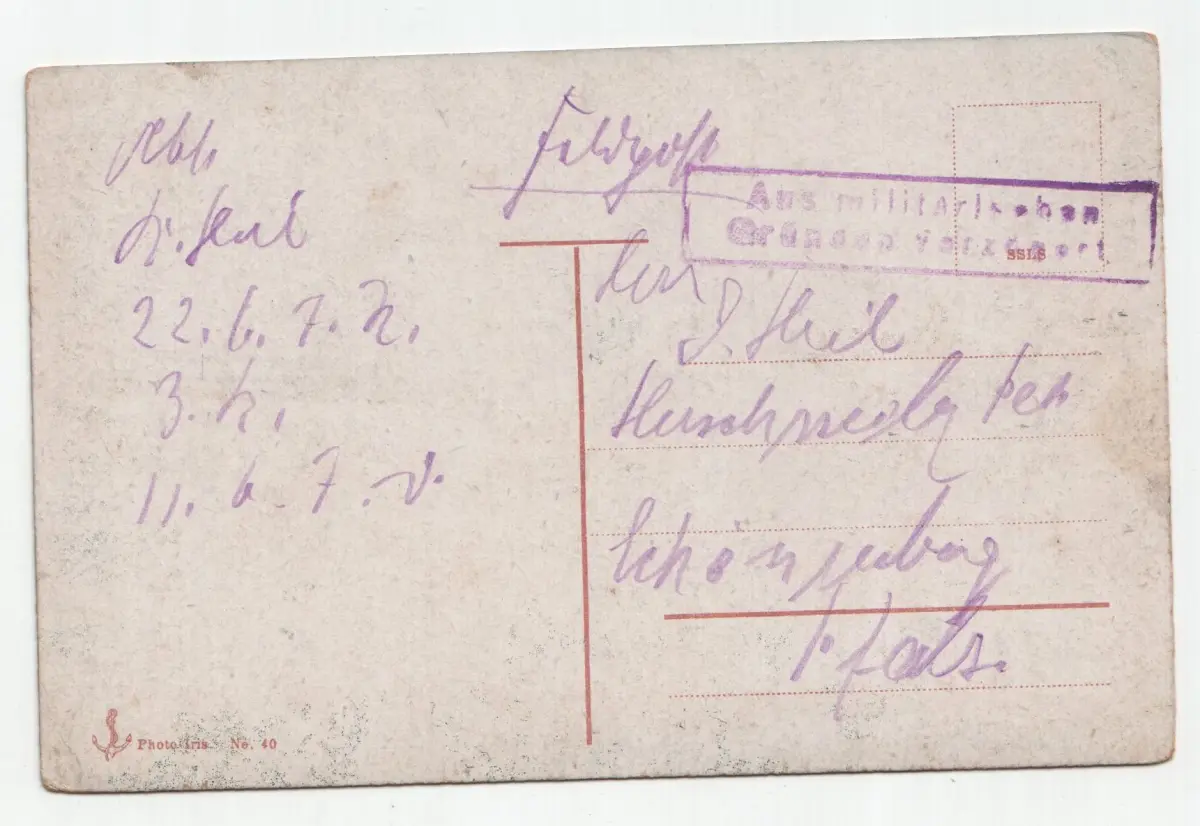 Feldpost
Aus militärischen
Gründen verzögert
SSLS
Abs.
K. Heil
22. b. 7. K.
3. K.
11. b. 7. D.
Herr
J. Heil
Schönenberg
Pfalz.
Photo Iris No. 40